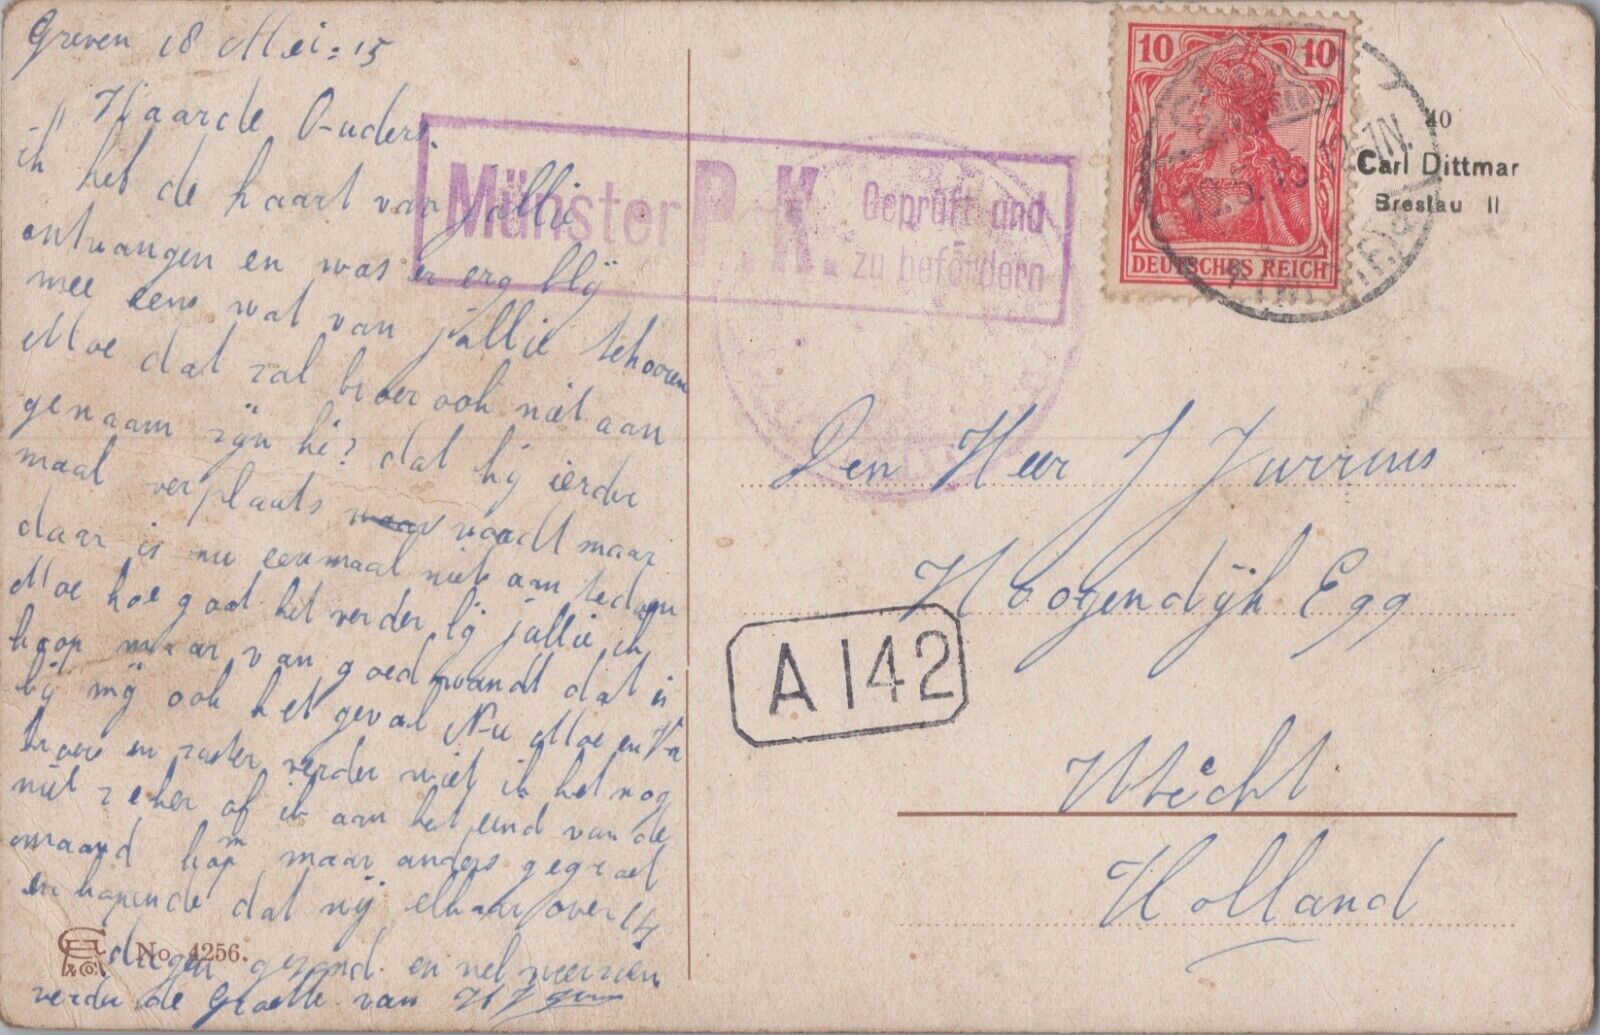 Greven 18 Mei: 15
Waarde Ouders.
ik heb de kaart van jullie
ontvangen en was er erg blij
mee eens wat van jullie te hooren
Moe dat zal broer ook niet aan
genaam zijn hé? dat hij ierder
maal verplaats wordt maar
daar is nu eenmaal niet aan te doen
Moe hoe gaat het verder bij jullie ik
hoop maar van goed want dat is
bij mij ook het geval Nu Moe en Va
broer en zuster verder weet ik het nog
niet zeker of ik aan het eind van de
maand kom maar anders gegroet
en hopende dat wij elkaar over 14
dagen gezond en wel
verder de Groeten van
No. 4256.
Münster P.K. Geprüft und
zu befördern
10 10
DEUTSCHES REICH
40
Carl Dittmar
Breslau II
Den Heer J Jurrius
Hoogendijk Egg
A 142
Utrecht
Holland